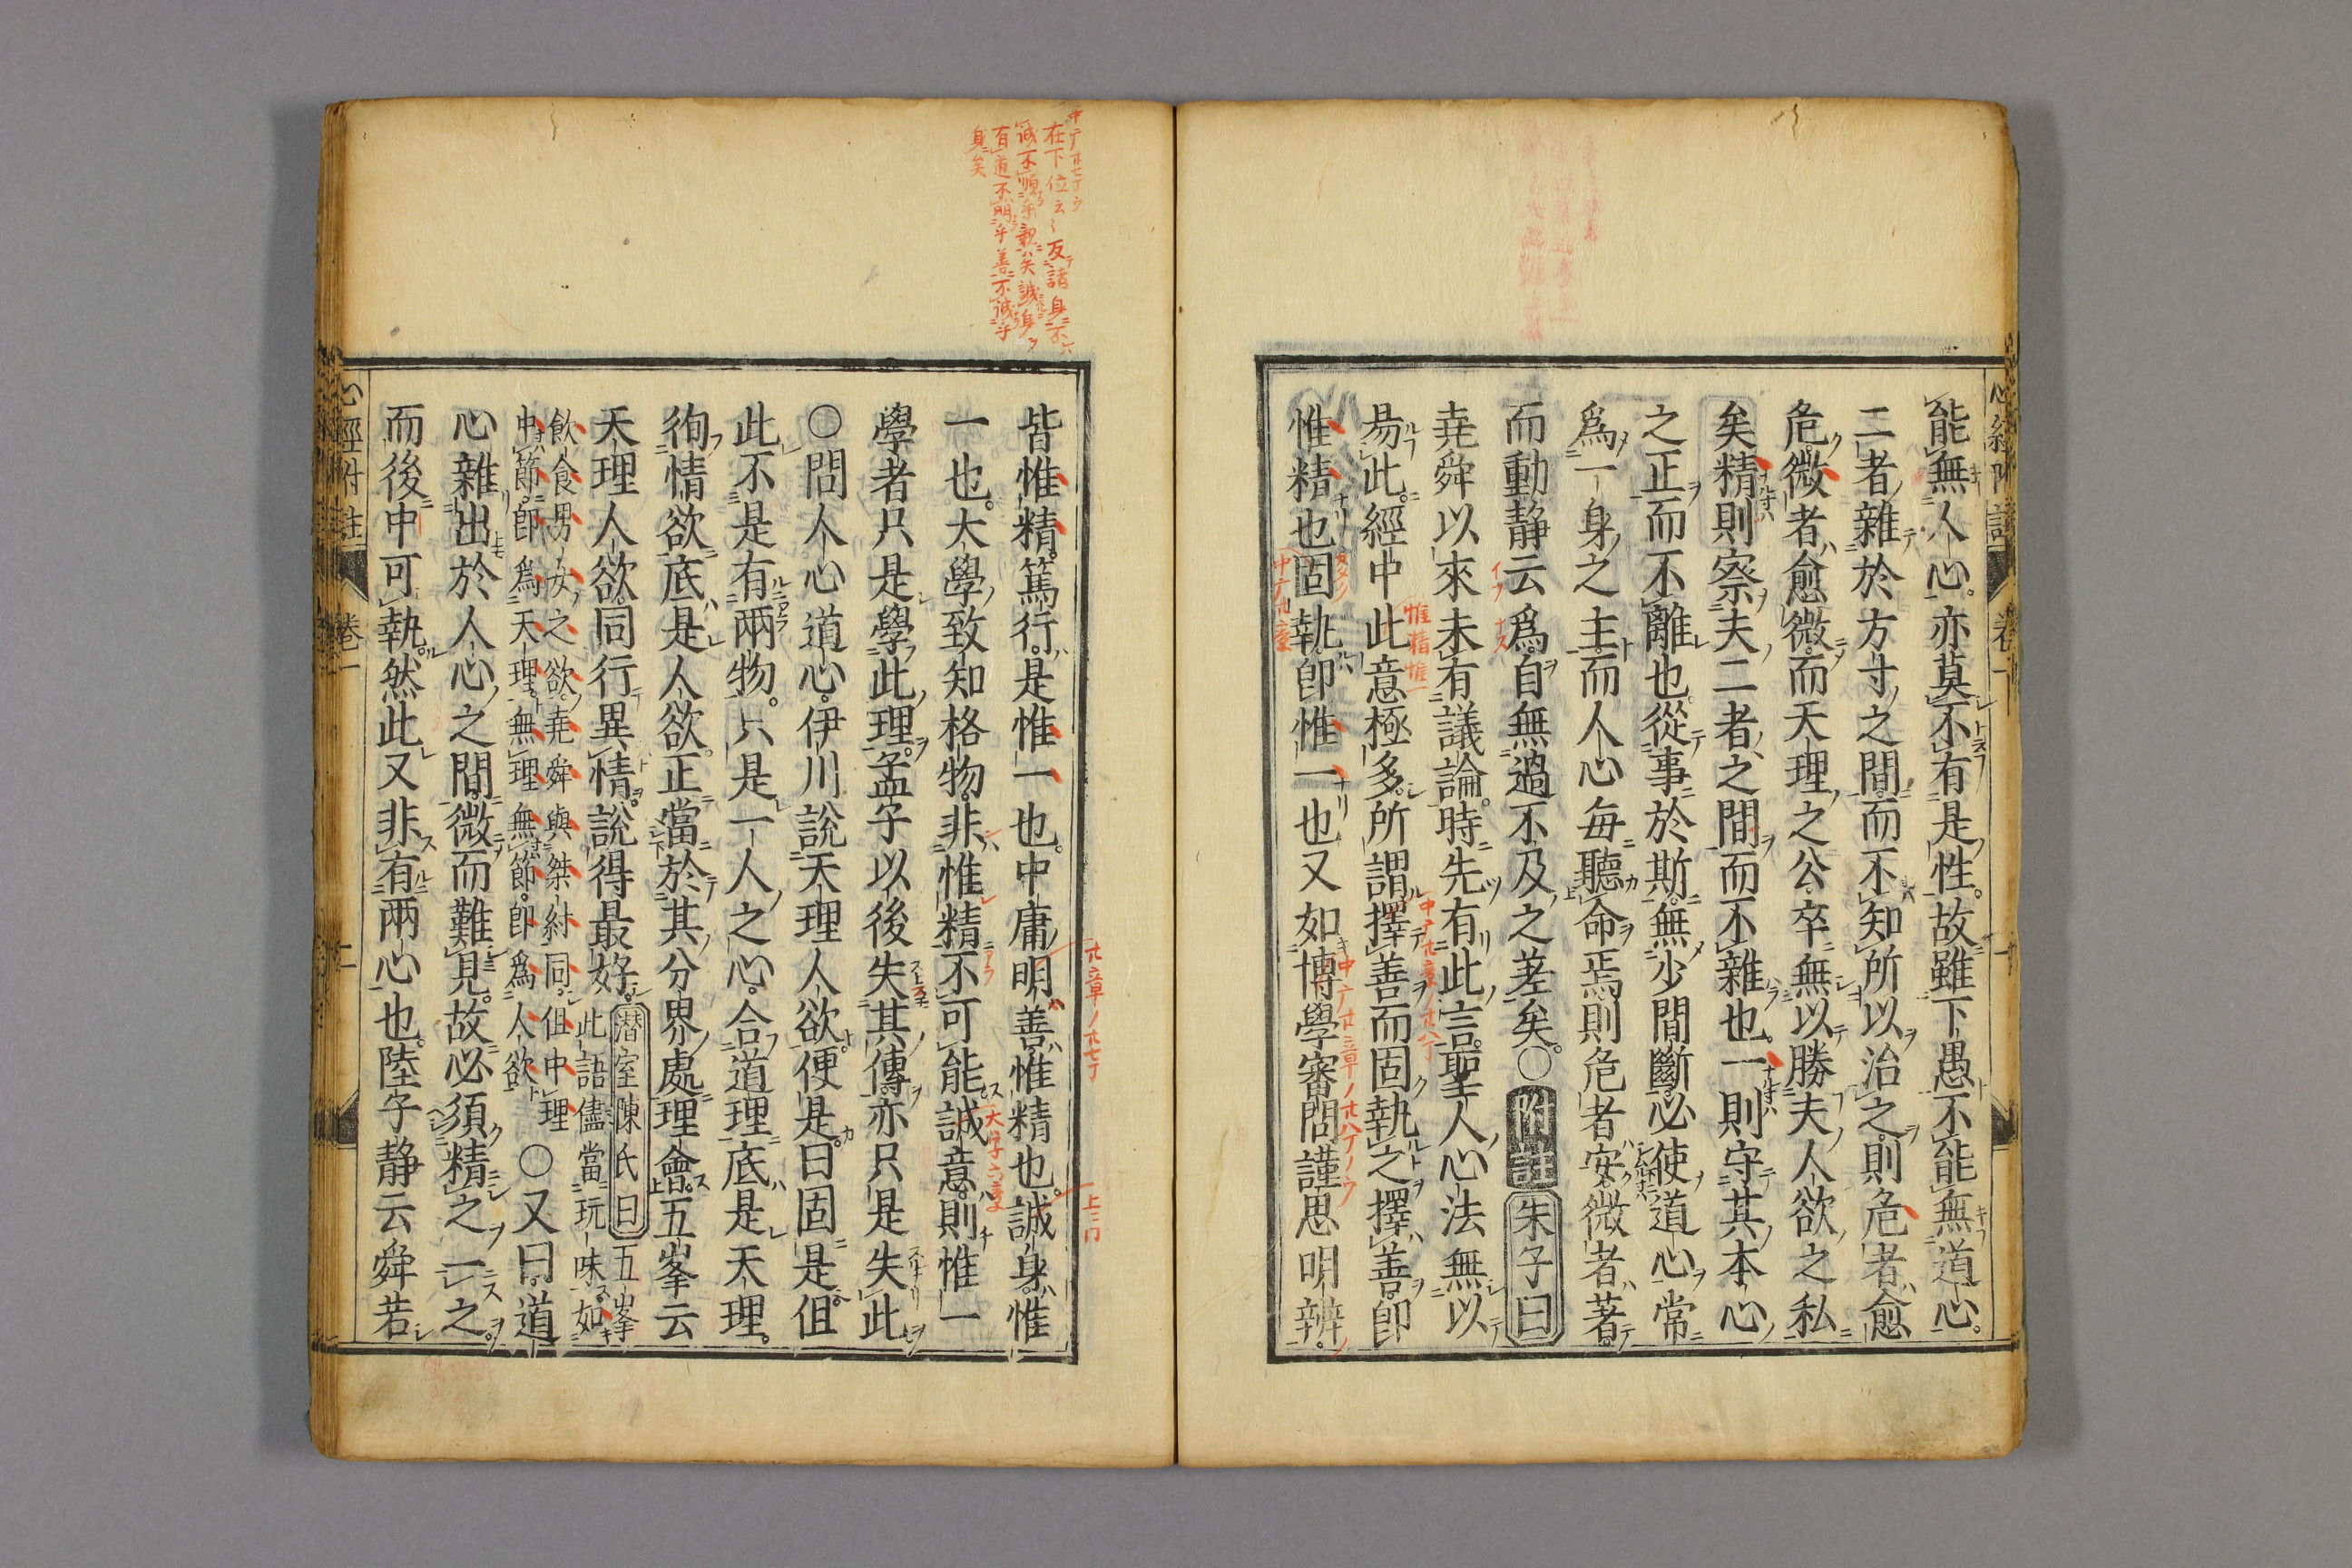 能無人心亦莫不有是性故雖下愚不能無道心
二者雜於方寸之間而不知所以治之則危者愈
危微者愈微而天理之公卒無以勝夫人欲之私
矣精則察夫二者之間而不雜也一則守其本心
之正而不離也從事於斯無少間斷必使道心常
爲一身之主而人心每聽命焉則危者安微者著
而動靜云爲自無過不及之差矣○附註朱子曰
堯舜以來未有議論時先有此言聖人心法無以
易此經中此意極多所謂擇善而固執之擇善即
惟精也固執即惟一也又如博學審問謹思明辨
皆惟精篤行是惟一也中庸明善惟精也誠身惟
一也大學致知格物非惟精不可能誠意則惟一
學者只是學此理孟子以後失其傳亦只是失此
○問人心道心伊川說天理人欲便是曰固是但
此不是有兩物只是一人之心合道理底是天理
徇情欲底是人欲正當於其分界處理會五峯云
天理人欲同行異情說得最好潛室陳氏曰五峯
此語儘當玩味如
飲食男女之欲堯舜與桀紂同但中理
中節即爲天理無理無節即爲人欲○又曰道
心雜出於人心之間微而難見故必須精之一之
而後中可執然此又非有兩心也陸子靜云舜若
心經附註 卷一 二
中ヲ廿七丁ウ
在下位云〻反諸身不
誠不順乎親矣誠身
有道不明乎善不誠乎
身矣
惟精惟一